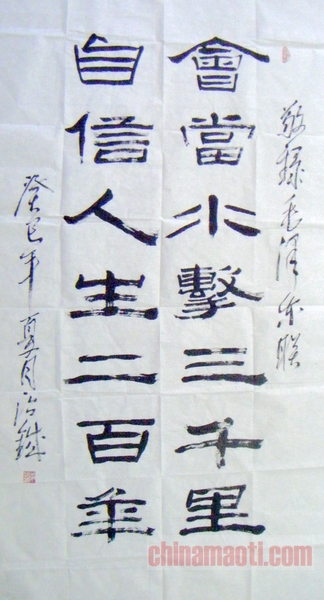 敬錄毛泽东联
會當水擊三千里
自信人生二百年
癸巳年夏月
chinamaoti.com